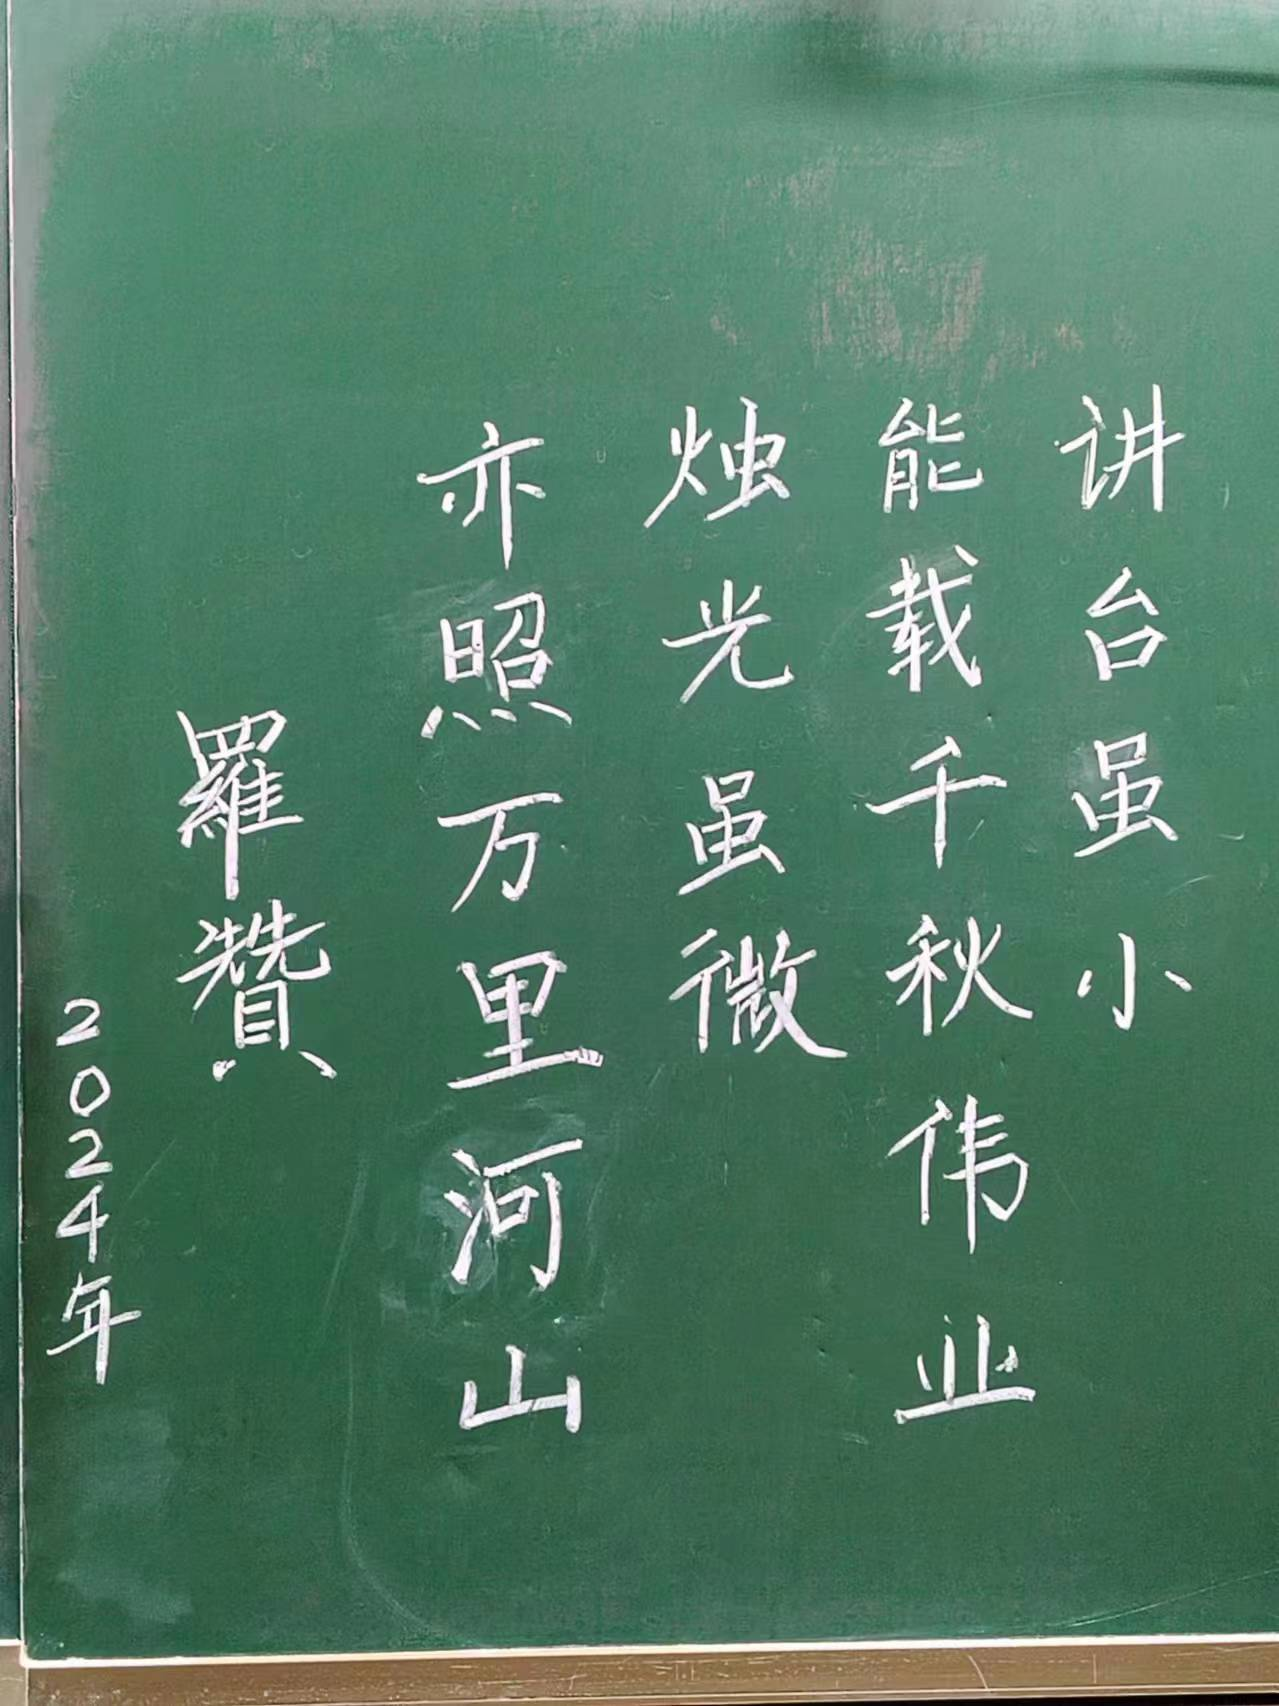 讲台虽小
能载千秋伟业
烛光虽微
亦照万里河山
羅贊
2024年